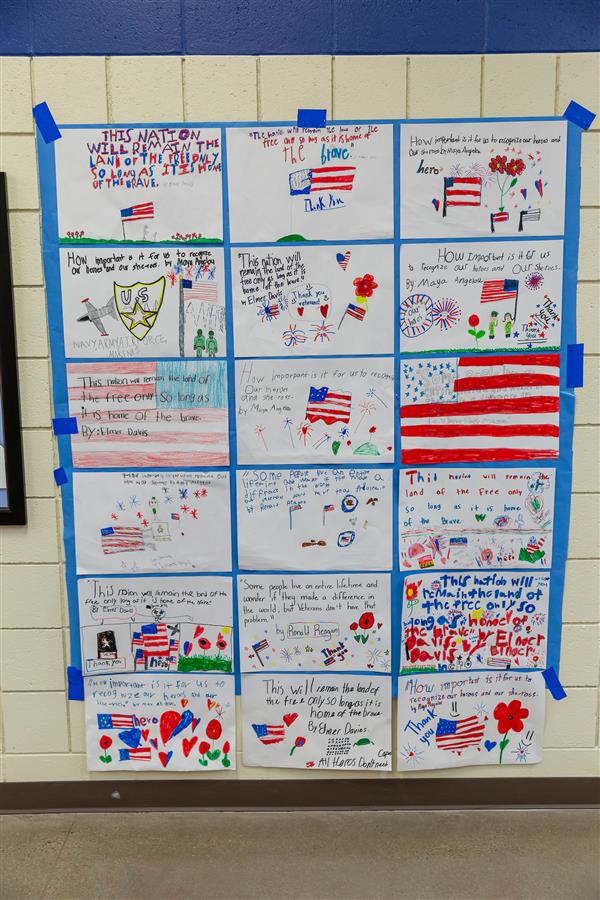 THIS NATION
WILL REMAIN THE
LAND OF THE FREE ONLY
SO LONG AS IT IS HOME
OF THE BRAVE.
free only so long as it is home of
the brave"
Thank You
How important is it for us to recognize our Heroes and
Our She-roes by Maya Angelou
hero
How important is it for us to recognize
Our heroes and our she-roes. by Maya Angelou
U.S
Thank
you
NAVY ARMY AIR FORCE,
MARINES
"This nation, will
remain the land of the
free only as long as it is
home of the brave"
by Elmer Davis
Thank you
veterans!
How Important is it for us
to recognize our heroes and Our She-roes.
By: Maya Angelou
our
heros
Thank
you
This nation will remain the land of
the free only so long as
it is home of the brave.
By: Elmer Davis
How important is it for us to recognize
Our Heroes
and she-roes.
by Maya Angelou
"Some People live an entire
lifetime and
wonder if they made a
difference
This nation will remain the
land of the Free only
so long as it is home of
the Brave
"This nation will remain the land of the
free only long as it is home of the brave"
By: Elmer Davis
Thank you
Hero
"Some people live an entire lifetime and
wonder if they made a difference in
the world, but Veterans don't have that
problem."
by Ronald Reagan
Thank
you
"This nation will
remain the land of
the free only so
long as it is
home of the
brave" by Elmer
Davis
"How important is it for us to
recognize our heroes and our
she-roes"
hero
Thank
you
This Will remain the land of
the free only so long as it is
home of the brave
by Elmer Davis
All Heros Don't
"How important is it for us to
recognize our heroes and our she-roes."
Thank
you